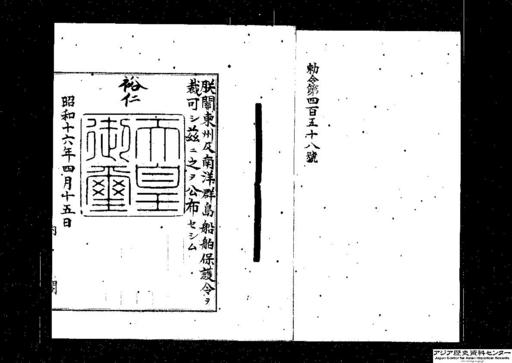 勅令第四百五十八號
朕關東州及南洋群島船舶保護令ヲ
裁可シ茲ニ之ヲ公布セシム
裕仁
天皇
御璽
昭和十六年四月十五日
内閣
アジア歴史資料センター
Japan Center for Asian Historical Records